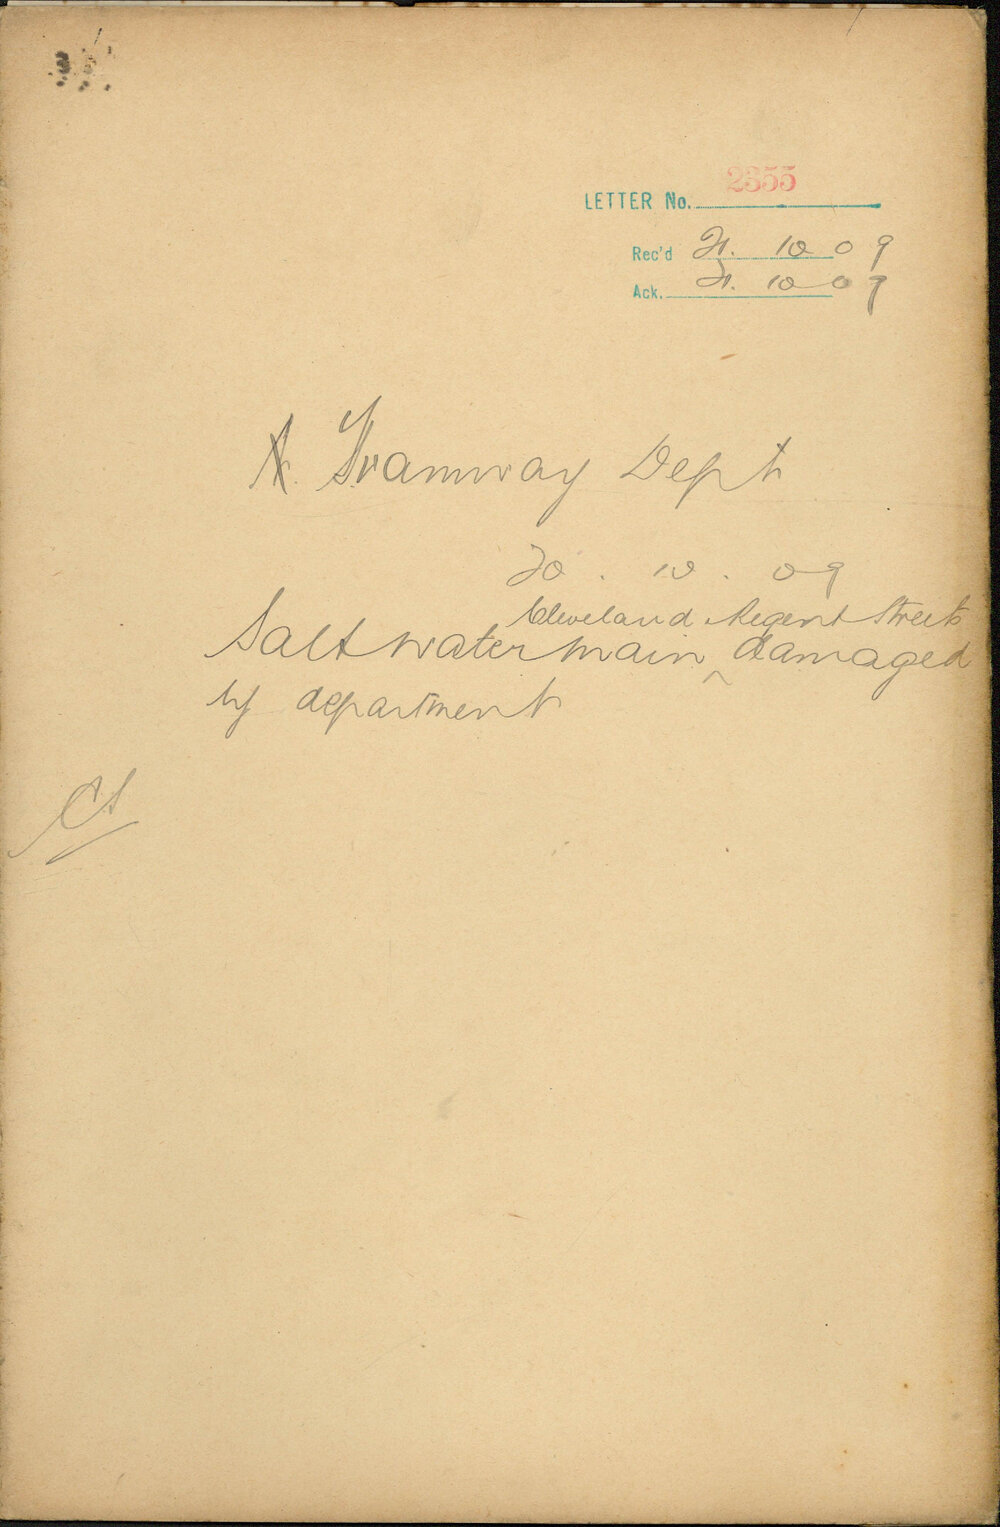 LETTER No. 2355
Rec'd 21. 10 09
Ack. 21. 10 09
Tramway Dept
20. 10. 09
Cleveland Regent Streets
Salt water main ^ damaged
by department